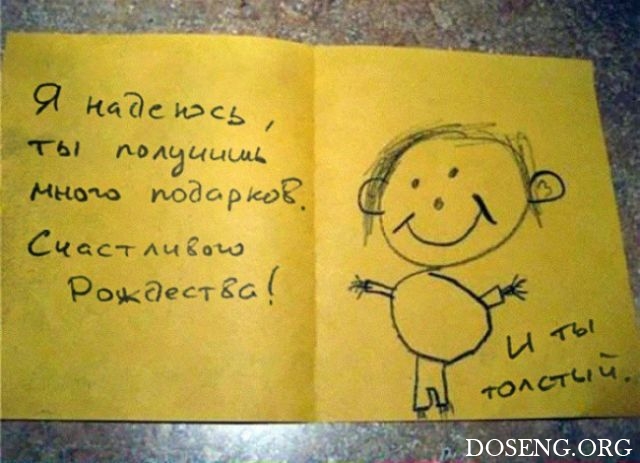 Я надеюсь,
ты получишь
много подарков.
Счастливого
Рождества!
И ты
толстый.
DOSENG.ORG